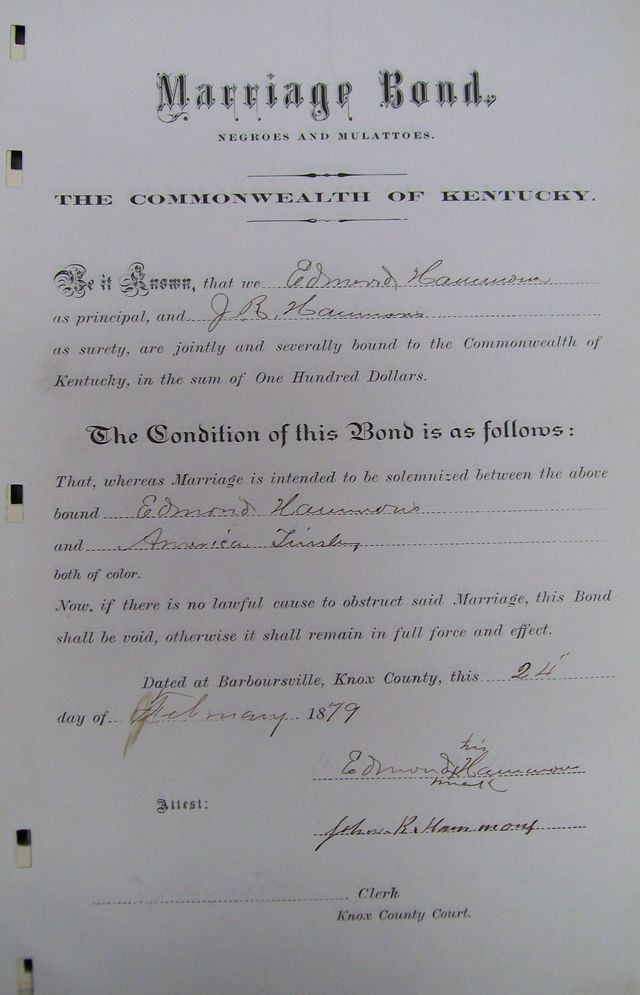 Marriage Bond.
NEGROES AND MULATTOES.
THE COMMONWEALTH OF KENTUCKY.
Be it Known, that we Edmond Hammons
as principal, and J. R. Hammons
as surety, are jointly and severally bound to the Commonwealth of
Kentucky, in the sum of One Hundred Dollars.
The Condition of this Bond is as follows:
That, whereas Marriage is intended to be solemnized between the above
bound Edmond Hammons
and America Tinsley
both of color.
Now, if there is no lawful cause to obstruct said Marriage, this Bond
shall be void, otherwise it shall remain in full force and effect.
Dated at Barboursville, Knox County, this 24"
day of February 1879
his
Edmond X Hammons
mark
Attest:
John R. Hammons
Clerk
Knox County Court.